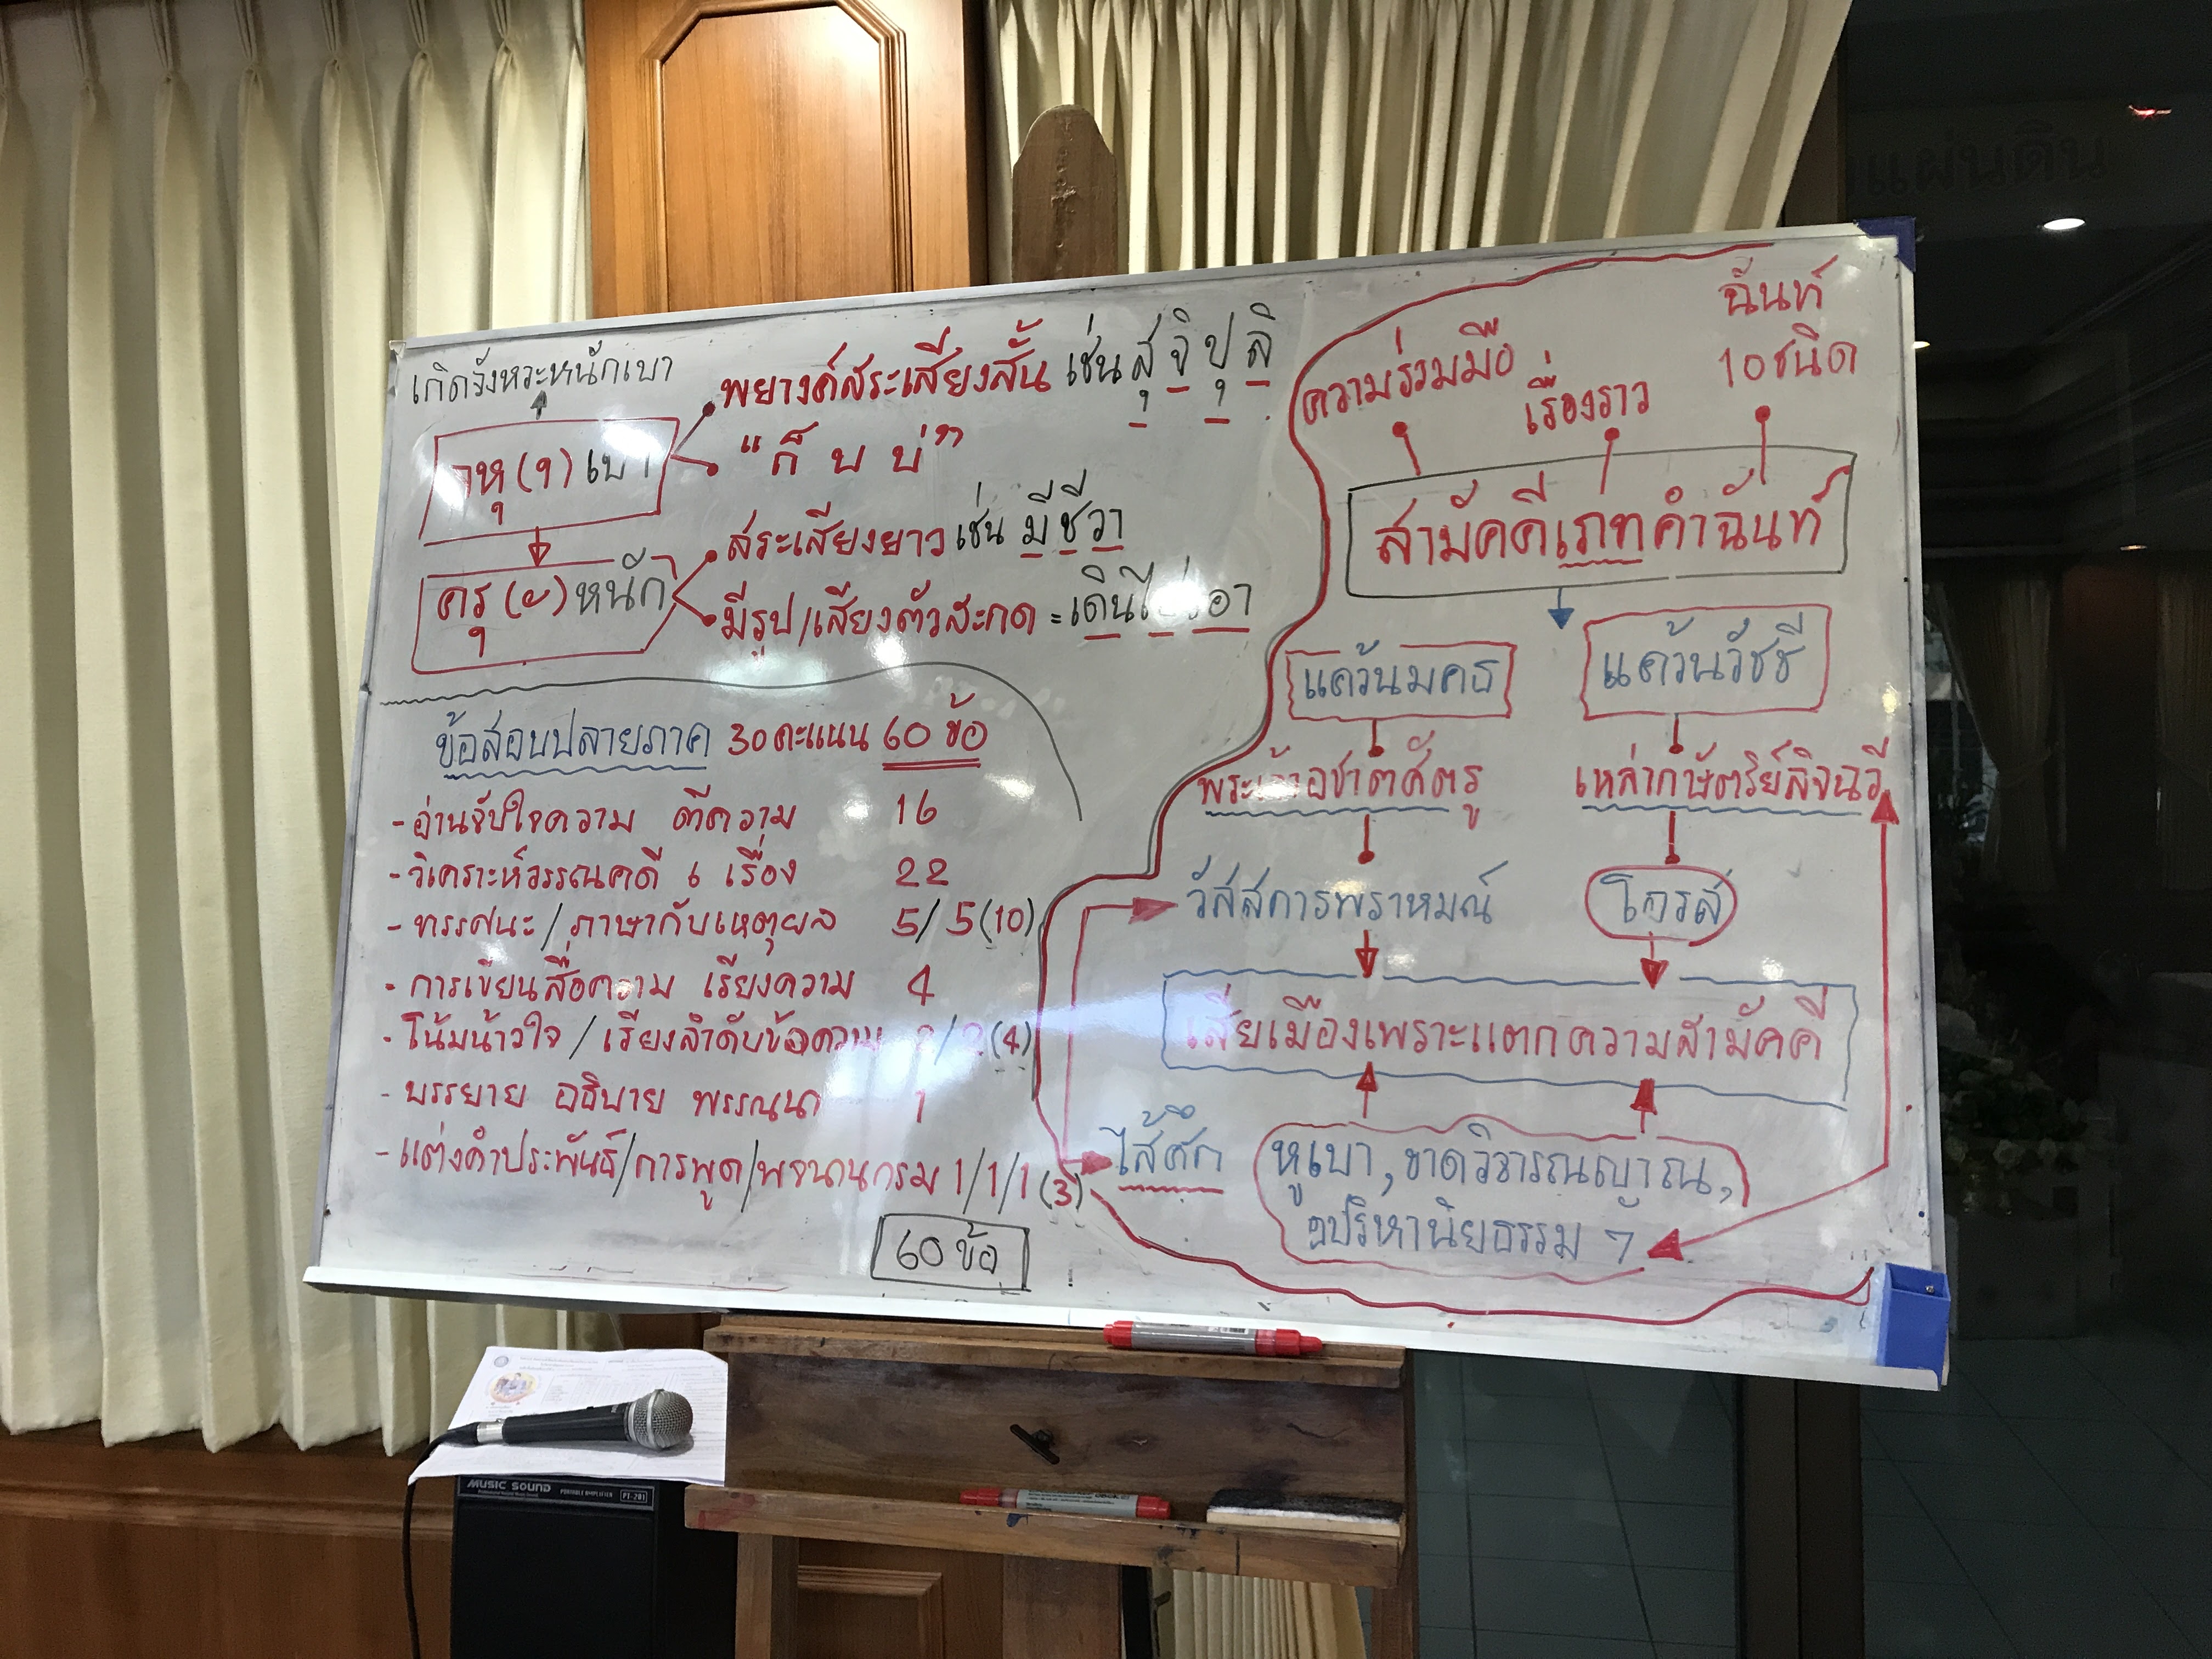 เกิดจังหวะหนักเบา
ลหุ (ุ) เบา
พยางค์สระเสียงสั้น เช่น สุ จิ ปุ ลิ
"ก็ บ บ่"
ครุ (ั) หนัก
สระเสียงยาว เช่น มี ชี วา
มีรูป/เสียงตัวสะกด =
ข้อสอบปลายภาค 30 คะแนน 60 ข้อ
- อ่านจับใจความ ตีความ 16
- วิเคราะห์วรรณคดี 6 เรื่อง 22
- ทรรศนะ / ภาษากับเหตุผล 5/5 (10)
- การเขียนสื่อความ เรียงความ 4
- โน้มน้าวใจ / เรียงลำดับข้อความ 2/2 (4)
- บรรยาย อธิบาย พรรณนา 1
- แต่งคำประพันธ์/การพูด/พจนานุกรม 1/1/1 (3)
60 ข้อ
ความร่วมมือ
เรื่องราว
ฉันท์
10 ชนิด
สามัคคีเภทคำฉันท์
แคว้นมคธ
แคว้นวัชชี
พระเจ้าอชาตศัตรู
เหล่ากษัตริย์ลิจฉวี
วัสสการพราหมณ์
เสียเมืองเพราะแตกความสามัคคี
ไส้ศึก
หูเบา, ขาดวิจารณญาณ,
อปริหานิยธรรม 7
แผ่นดิน
MUSIC SOUND
PORTABLE AMPLIFIER
PT-201